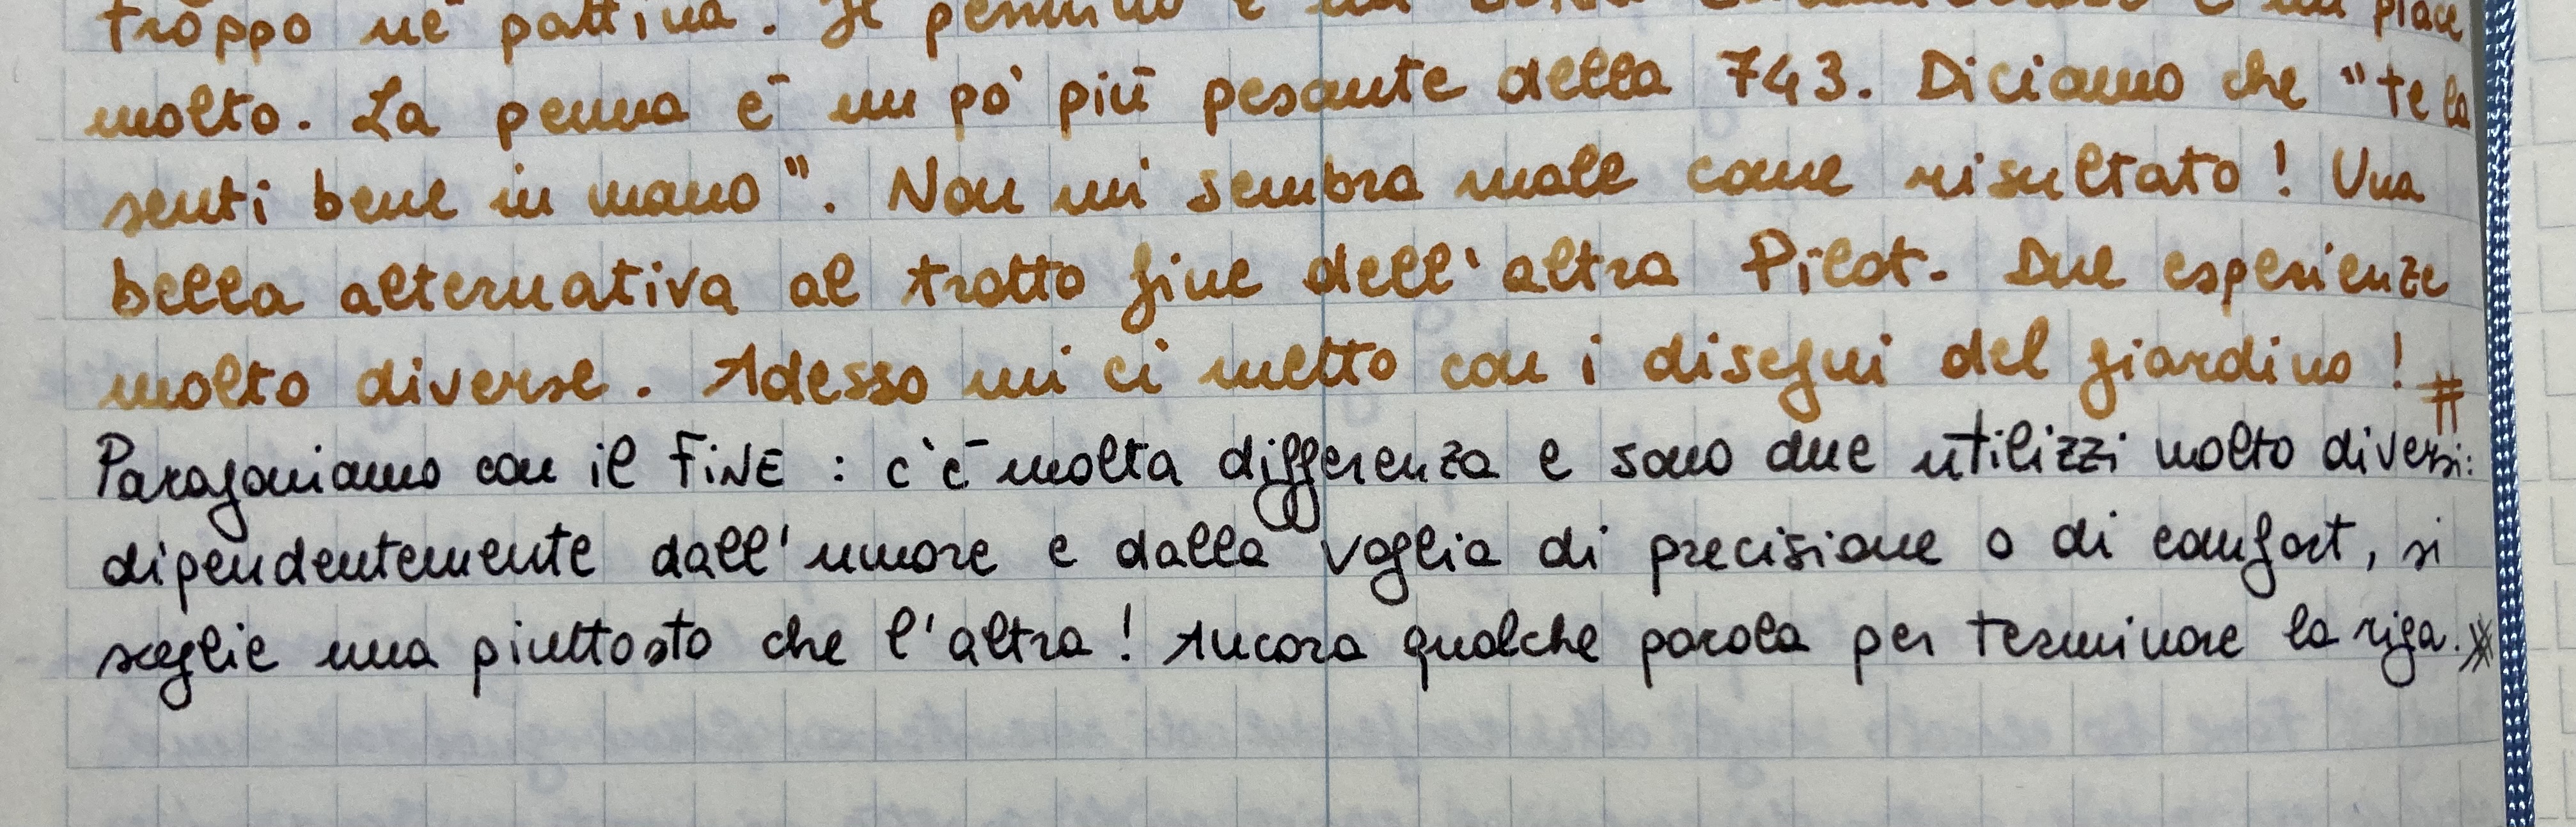 troppo né pattina. Il pennino è un piace
molto. La penna è un po' più pesante della 743. Diciamo che "te la
senti bene in mano". Non mi sembra male come risultato! Una
bella alternativa al tratto fine dell'altra Pilot. Due esperienze
molto diverse. Adesso mi ci metto con i disegni del giardino! #
Paragoniamo con il FiNE : c'è molta differenza e sono due utilizzi molto diversi:
dipendentemente dall'umore e dalla voglia di precisione o di comfort, si
sceglie una piuttosto che l'altra! Ancora qualche parola per terminare la riga.